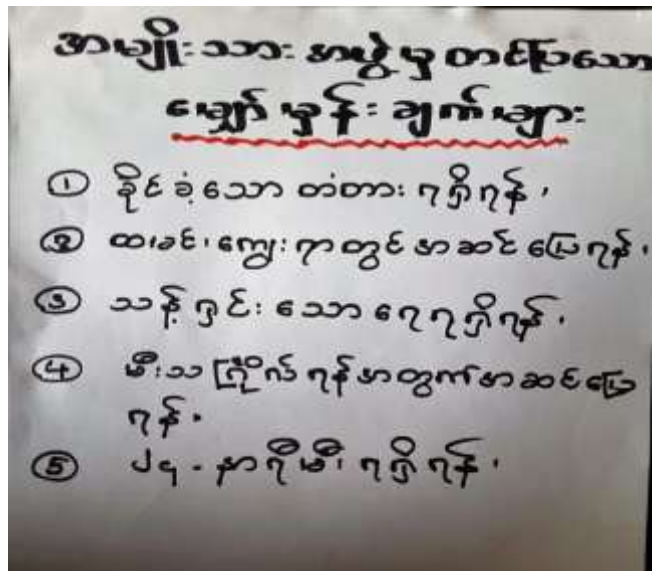 အမျိုးသားအဖွဲ့မှတင်ပြသော
မျှော်မှန်းချက်များ
① ခိုင်ခံ့သောတံတားရရှိရန်၊
② ထ၊ခင်၊ကျေးရွာတွင်အဆင်ပြေရန်၊
③ သန့်ရှင်းသောရေရရှိရန်၊
④ မီးသဂြိုလ်ရန်အတွက်အဆင်ပြေ
ရန်၊
⑤ ၂၄-နာရီမီးရရှိရန်၊